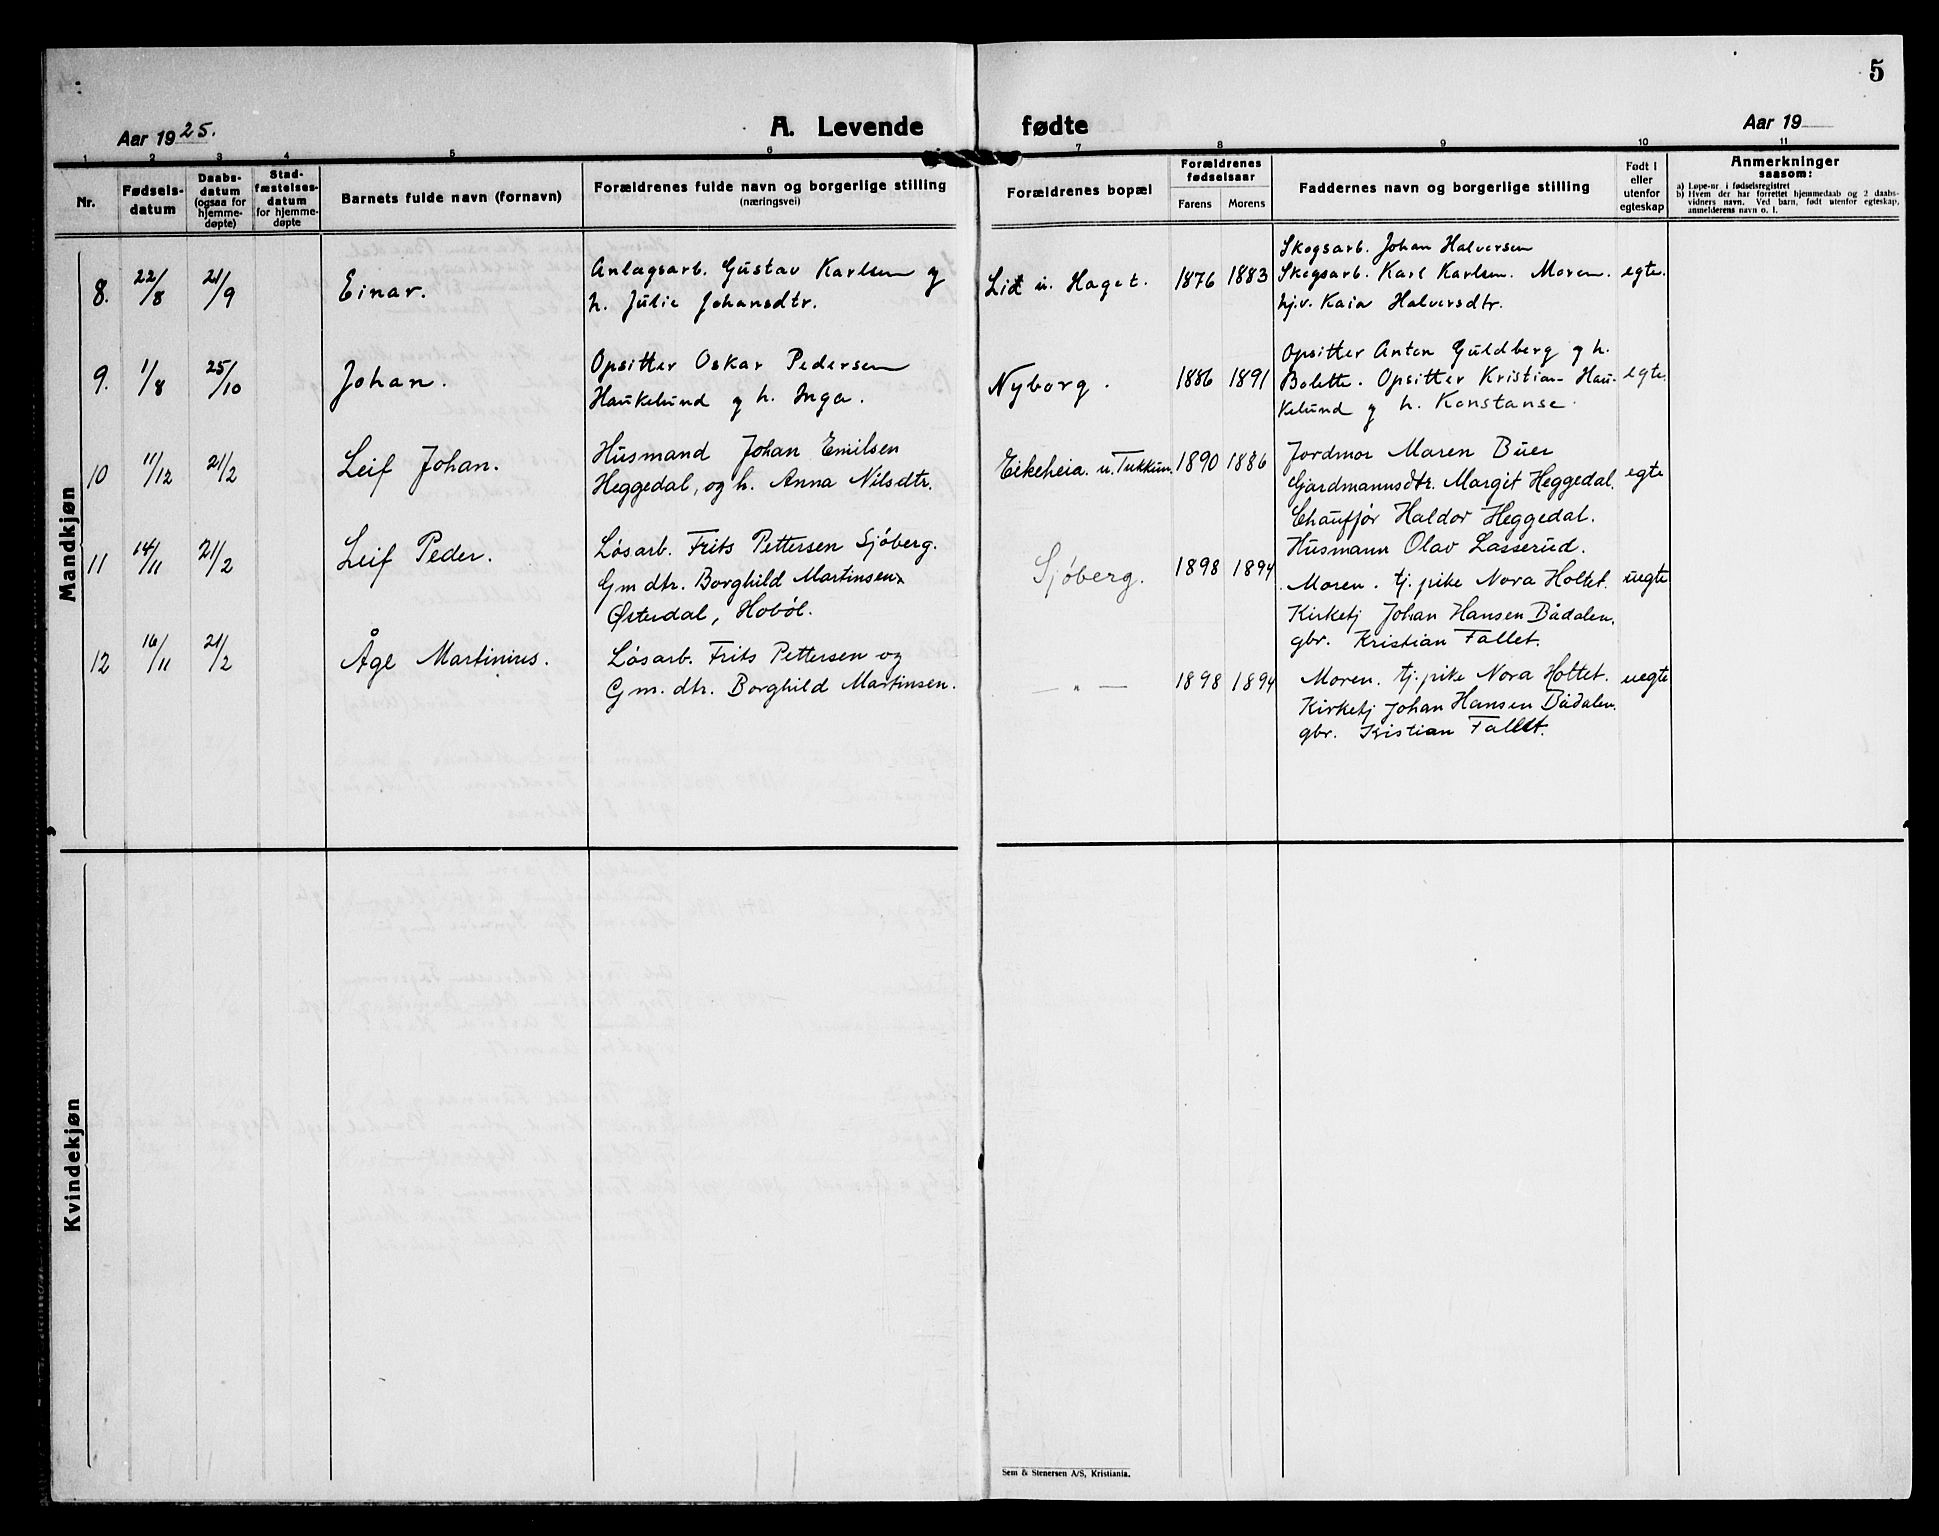 5
Aar 1925.
A. Levende fødte
Aar 19
1 2 3 4 5 6 7 8 9 10 11
Nr.
Fødsels-
datum
Daabs-
datum
(ogsaa for
hjemme-
døpte)
Stad-
fæstelses-
datum
for hjemme-
døpte
Barnets fulde navn (fornavn)
Forældrenes fulde navn og borgerlige stilling
(næringsvei)
Forældrenes bopæl
Forældrenes
fødselsaar
Farens Morens
Faddernes navn og borgerlige stilling
Født i
eller
utenfor
egteskap
Anmerkninger
saasom:
a) Løpe-nr. i fødselsregistret
b) Hvem der har forrettet hjemmedaab og 2 daabs-
vidners navn. Ved barn, født utenfor egteskap,
anmelderens navn o. l.
Mandkjøn
8. 22/8 21/9 Einar.
Anlagsarb. Gustav Karlsen og
h. Julie Johansdtr.
Lid u. Haget. 1876 1883
Skogsarb. Johan Halversen
Skogsarb. Karl Karlsen. Moren.
hj.v. Kaia Halversdtr.
egte.
9. 1/8 25/10 Johan.
Opsitter Oskar Pedersen
Haukelund og h. Inga.
Nyborg. 1886 1891
Opsitter Anton Guldberg og h.
Bolette. Opsitter Kristian Hau-
kelund og h. Konstanse.
egte.
10 11/12 21/2 Leif Johan.
Husmand Johan Emilsen
Heggedal, og h. Anna Nilsdtr.
Eikeheia u. Tukkun. 1890 1886
Jordmor Maren Buer
Gardmannsdtr. Margit Heggedal.
Chaufför Haldor Heggedal.
Husmann Olav Lasserud.
egte
11 14/11 21/2 Leif Peder.
Løsarb. Frits Pettersen Sjöberg.
Gm dtr. Borghild Martinsen
Østerdal, Hobøl.
Sjöberg. 1898 1894
Moren. tj. pike Nora Holtet.
Kirketj Johan Hansen Bådalen.
gbr. Kristian Fallet.
uegte
12 16/11 21/2 Åge Martinius.
Løsarb. Frits Pettersen og
Gm. dtr. Borghild Martinsen.
— " — 1898 1894
Moren. tj. pike Nora Holtet.
Kirketj Johan Hansen Bådalen.
gbr. Kristian Fallet.
uegte
Kvindekjøn
Sem & Stenersen A/S, Kristiania.